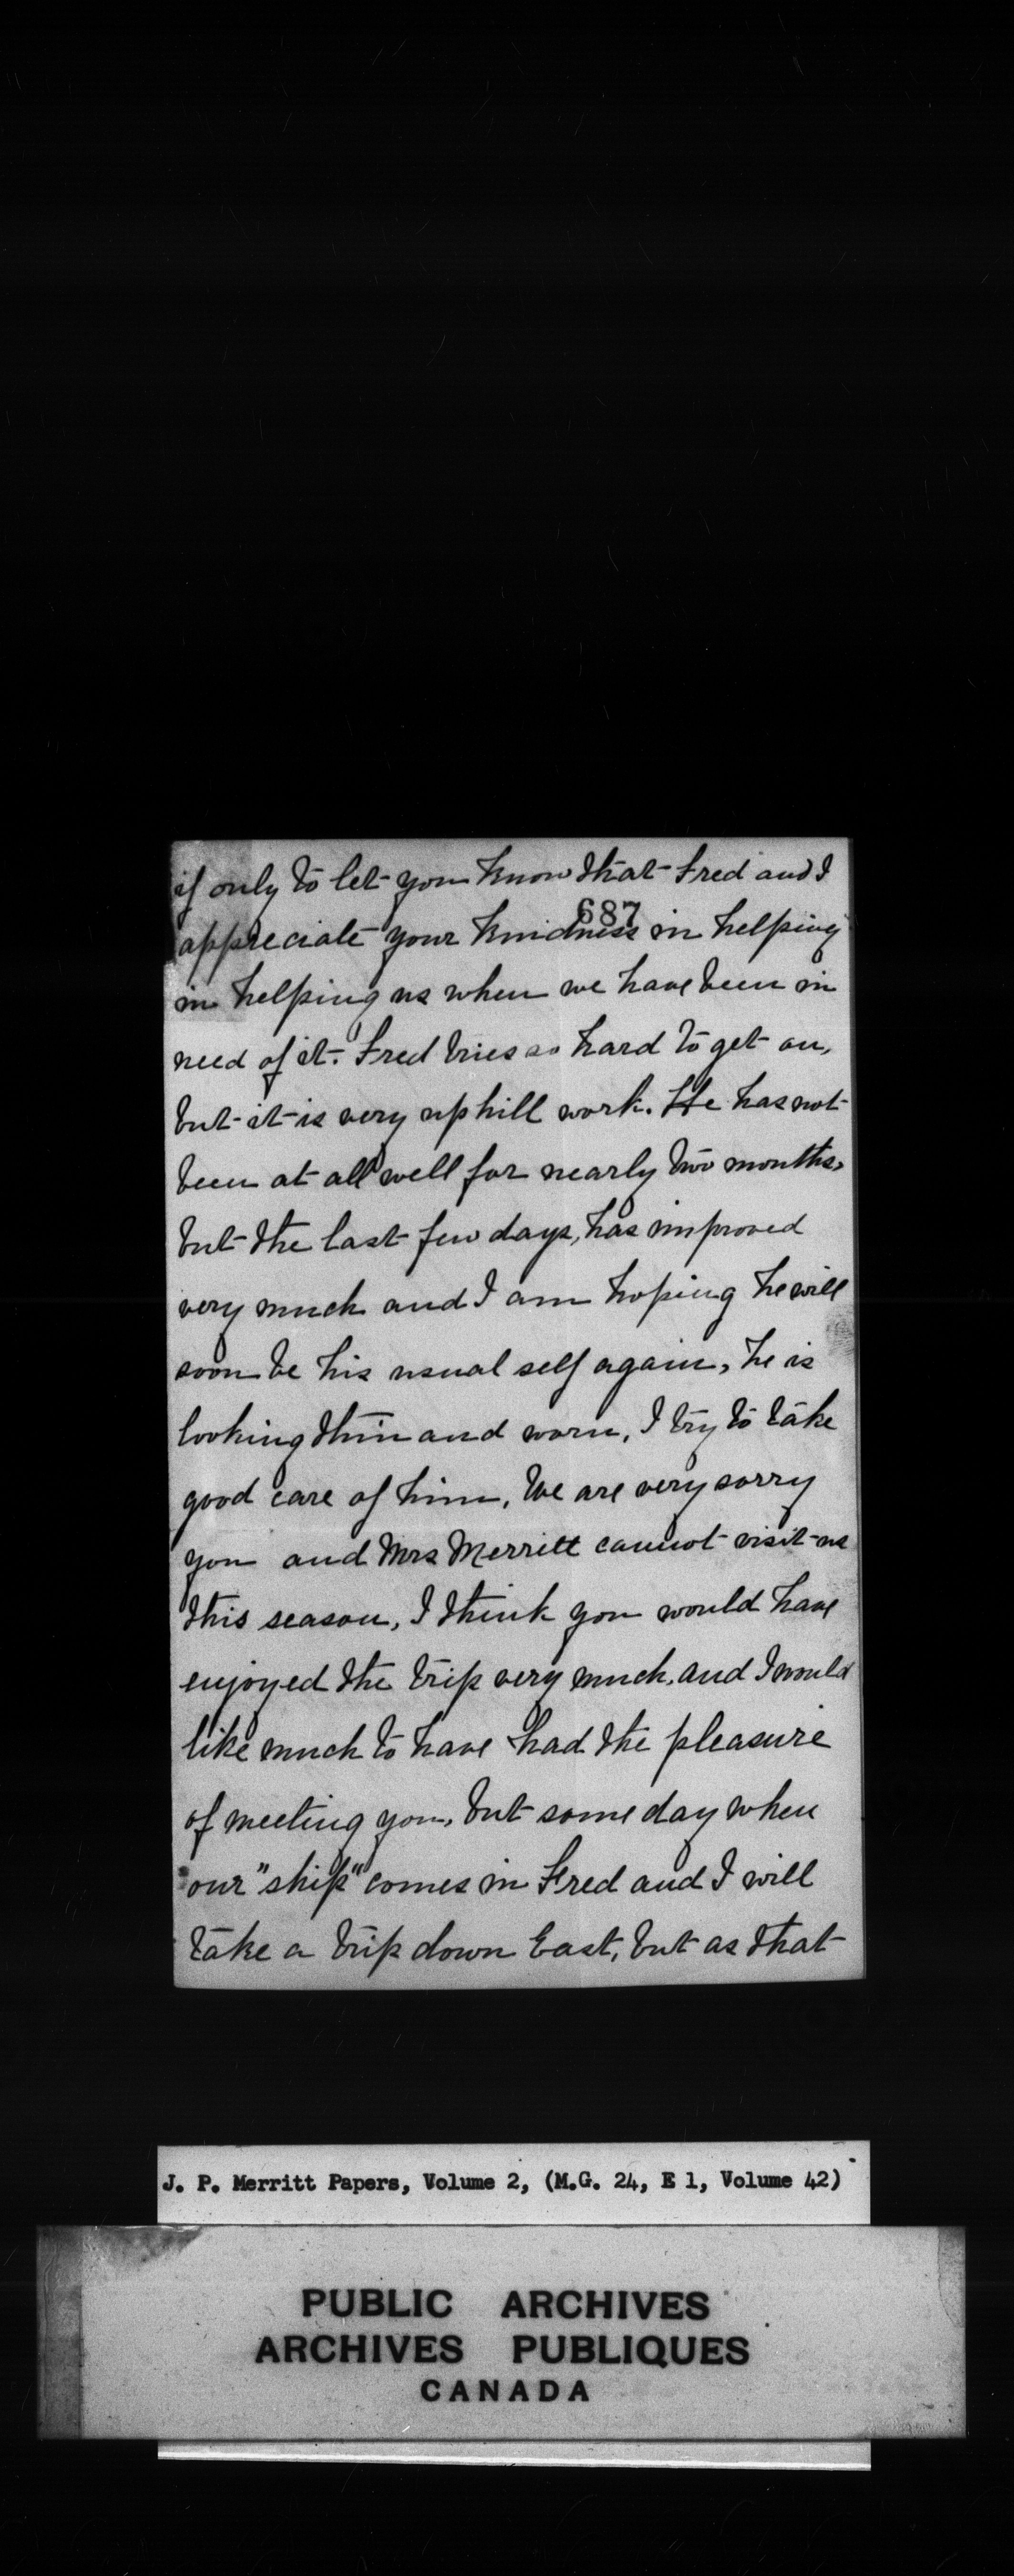 if only to let you know that Fred and I
687
appreciate your kindness in helping
in helping us when we have been in
need of it. Fred tries so hard to get on,
but it is very uphill work. He has not
been at all well for nearly two months,
but the last few days, has improved
very much and I am hoping he will
soon be his usual self again, he is
looking thin and worn, I try to take
good care of him, We are very sorry
you and Mrs Merritt cannot visit us
this season, I think you would have
enjoyed the trip very much, and I would
like much to have had the pleasure
of meeting you, but some day when
our "ship" comes in Fred and I will
take a trip down East, but as that
J. P. Merritt Papers, Volume 2, (M.G. 24, E 1, Volume 42)
PUBLIC ARCHIVES
ARCHIVES PUBLIQUES
CANADA